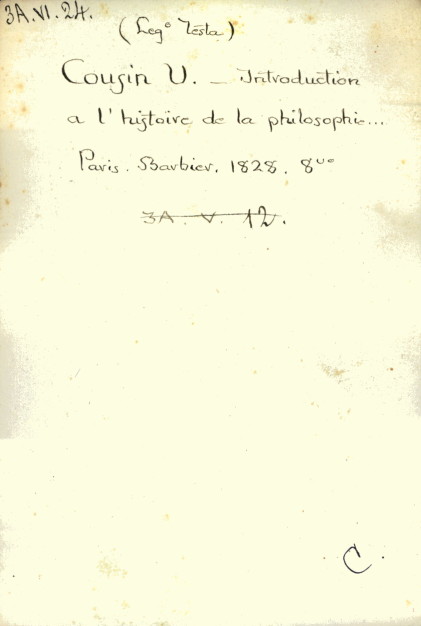 3A.VI.24.
(Leg° Testa)
Cousin V. — Introduction
a l'histoire de la philosophie...
Paris. Barbier. 1828. 8vo
3A. V. 12.
C.